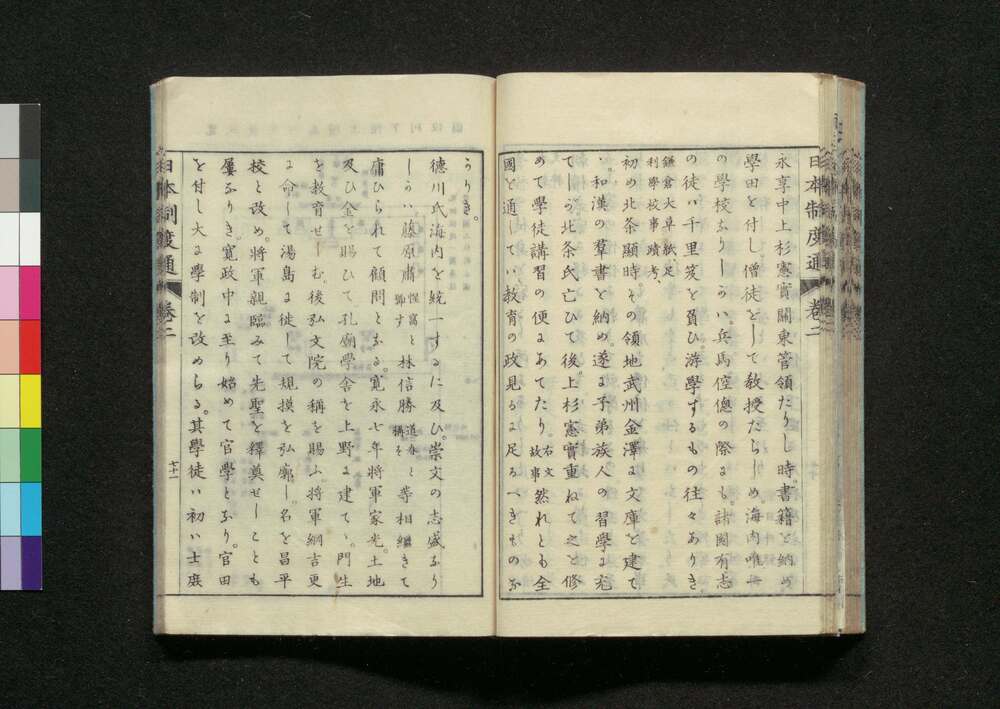 永享中上杉憲實關東管領たりし時。書籍を納め
學田を付し。僧徒をして教授たらしめ。海内唯一
の學校なりしかハ。兵馬倥傯の際にも。諸國有志
の徒ハ千里笈を負ひ游學するもの往々ありき。
鎌倉大草紙、足
利學校事蹟考、
初め北条顯時。その領地武州金澤に文庫を建て
和漢の羣書を納め。遂に子弟族人の習學に充
てしか。北条氏亡ひて後。上杉憲實重ねて之を修
めて學徒講習の便にあてたり。右文故事然れとも全
國を通してハ教育の政見るに足るへきものな
かりき。
德川氏海内を統一するに及ひ。崇文の志盛なり
しかハ。藤原肅惺窩と號す林信勝道春と稱す等相繼きて
庸ひられて顧問となる。寛永七年將軍家光。土地
及ひ金を賜ひて。孔廟學舎を上野に建て。門生
を教育せしむ。後弘文院の稱を賜ふ。將軍綱吉更
に命して湯島に徙して規摸を弘廓し。名を昌平
校と改め。將軍親臨みて先聖を釋奠せしことも
屢なりき。寛政中に至り始めて官學となり。官田
を付し大に學制を改めらる。其學徒ハ初ハ士庶
日本制度通
卷二
日本制度通
卷二
七十一